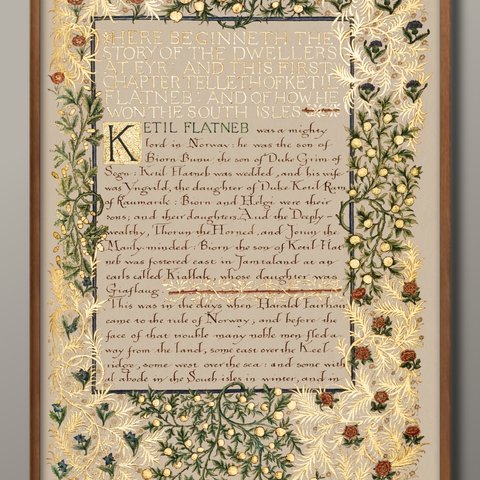 HERE BEGINNETH THE
STORY OF THE DWELLERS
AT EYR · AND THIS FIRST
CHAPTER TELLETH OF KETIL
FLATNEB · AND OF HOW HE
WON THE SOUTH ISLES
KETIL FLATNEB was a mighty
lord in Norway : he was the son of
Biorn Bunu the son of Duke Grim of
Sogn : Ketil Flatneb was wedded, and his wife
was Yngvild, the daughter of Duke Ketil Ram
of Raumarik : Biorn and Helgi were their
sons; and their daughters Aud the Deeply-
wealthy, Thorun the Horned, and Jorun the
Manly-minded : Biorn the son of Ketil Flat
neb was fostered east in Jamtaland at an
earls called Kiallak, whose daughter was
Giaflaug
This was in the days when Harald Fairhair
came to the rule of Norway ; and before the
face of that trouble many noble men fled a
way from the land, some east over the Keel
ridge, some west over the sea : and some with
al abode in the South isles in winter, and in